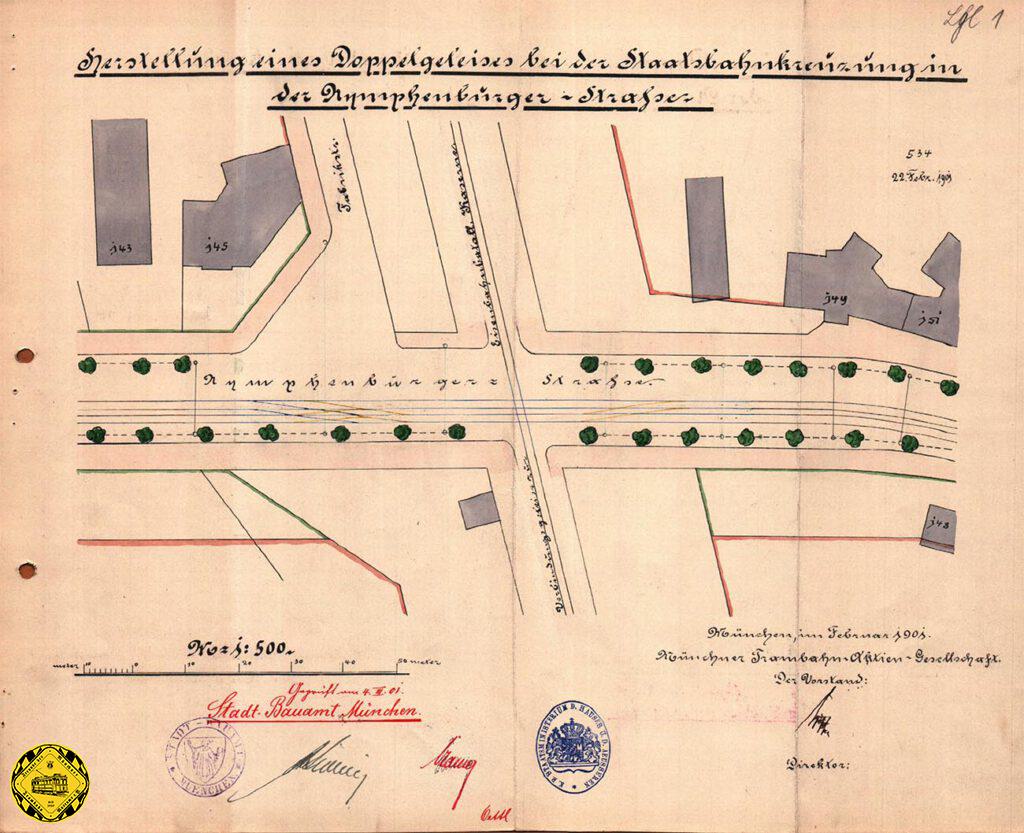 Lgl 1
Herstellung eines Doppelgeleises bei der Staatsbahnkreuzung in
der Nymphenburger - Strasse.
534
22. Febr. 1901
Fabrikstr.
Eisenbahnbatall. Kaserne
143
145
149
151
Nymphenburger Strasse.
Verbindungsgeleis zur
148
M = 1:500.
meter 10 0 10 20 30 40 50 meter
Geprüft am 4. III. 01.
Stadt-Bauamt München.
München, im Februar 1901.
Münchner Trambahn-Aktien-Gesellschaft.
Der Vorstand:
Direktor:
STADT-BAUAMT MUENCHEN
K. B. STAATSMINISTERIUM D. K. HAUSES U. D. AEUSSEREN